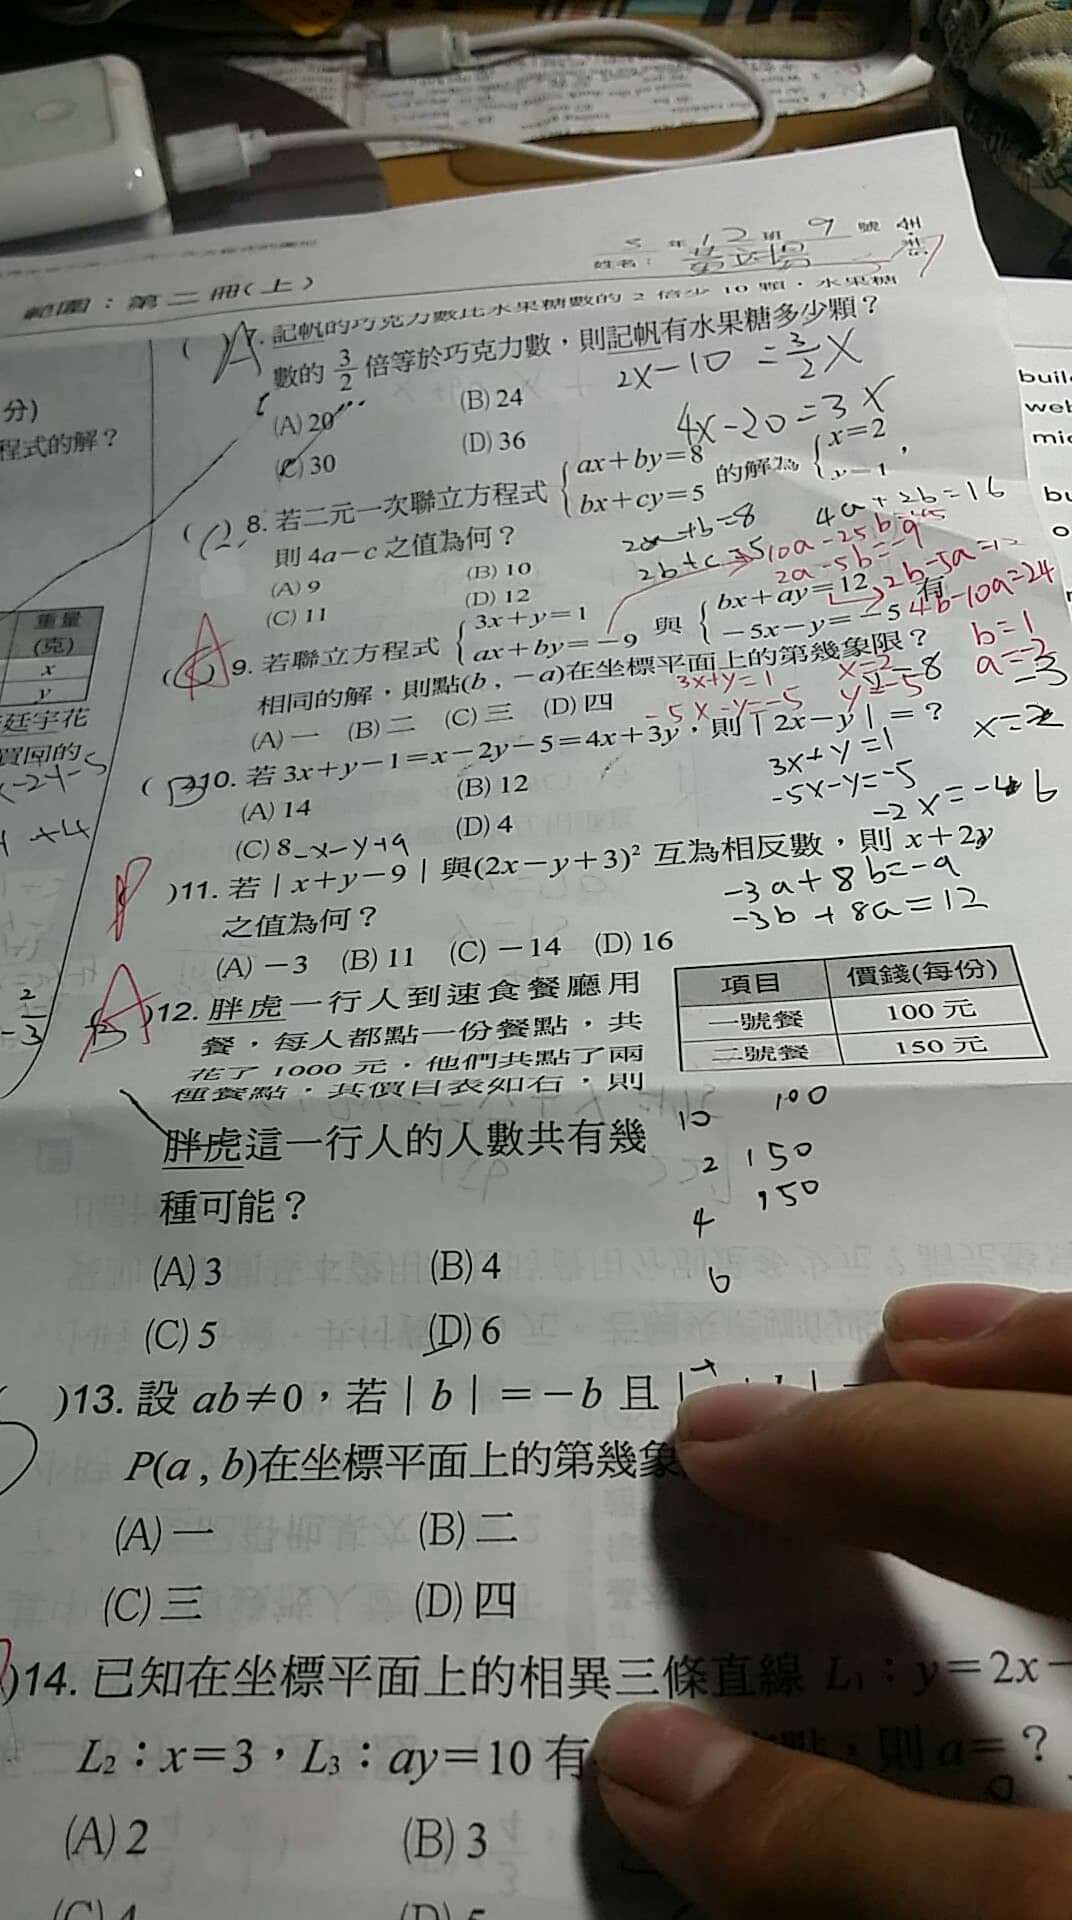 年12班 9 號
姓名：
範圍：第二冊(上)
分)
程式的解？
A 7. 記帆的巧克力數比水果糖數的 2 倍少 10 顆，水果糖
數的 3/2 倍等於巧克力數，則記帆有水果糖多少顆？
(A) 20 (B) 24
(C) 30 (D) 36
2x-10=3/2x
4x-20=3x
( )8. 若二元一次聯立方程式 { ax+by=8 bx+cy=5 的解為 { x=2 y=1 ，
則 4a-c 之值為何？
(A) 9 (B) 10
(C) 11 (D) 12
2a+b=8
4a+2b=16
2b+c=5
10a-25b=-45
2a-5b=-9
2b-5a=12
4b-10a=24
b=1
a=-2
( )9. 若聯立方程式 { 3x+y=1 ax+by=-9 與 { bx+ay=12 -5x-y=-5 有
相同的解，則點(b , -a)在坐標平面上的第幾象限？
(A) 一 (B) 二 (C) 三 (D) 四
3x+y=1
-5x-y=-5
x=2
y=-5
( )10. 若 3x+y-1=x-2y-5=4x+3y，則｜2x-y｜=？
(A) 14 (B) 12
(C) 8 (D) 4
-x-y+9
3x+y=1
-5x-y=-5
)11. 若｜x+y-9｜與(2x-y+3)² 互為相反數，則 x+2y
之值為何？
(A) -3 (B) 11 (C) -14 (D) 16
-3a+8b=-9
-3b+8a=12
A )12. 胖虎一行人到速食餐廳用
餐，每人都點一份餐點，共
花了 1000 元，他們共點了兩
種餐點，其價目表如右，則
胖虎這一行人的人數共有幾
種可能？
(A) 3 (B) 4
(C) 5 (D) 6
項目 價錢(每份)
一號餐 100 元
二號餐 150 元
10 100
2 150
4 150
6
)13. 設 ab≠0，若｜b｜=-b 且
P(a , b)在坐標平面上的第幾象
(A) 一 (B) 二
(C) 三 (D) 四
)14. 已知在坐標平面上的相異三條直線 L₁：y=2x-
L₂：x=3，L₃：ay=10 有 點，則 a=？
(A) 2 (B) 3
(C) 4 (D) 5
重量
(克)
x
y
廷宇花
買回的
x-2y-5
+4
2/3